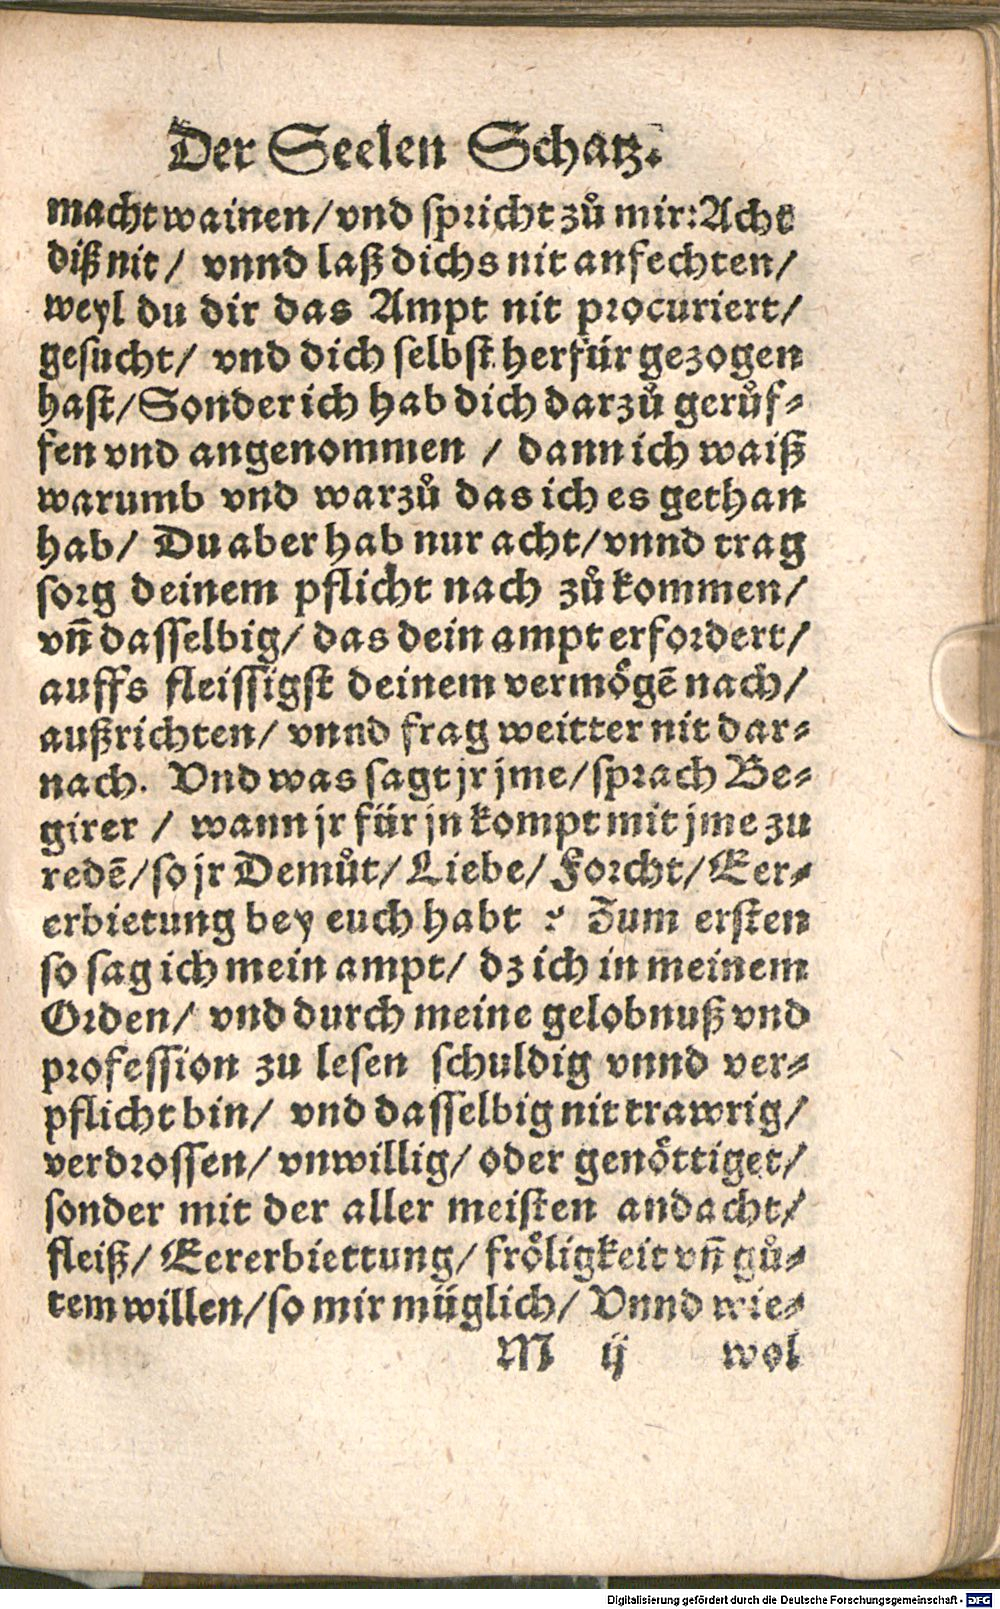 Der Seelen Schatz.
macht wainen/ vnd spricht zů mir: Acht
diß nit/ vnnd laß dichs nit anfechten/
weyl du dir das Ampt nit procuriert/
gesucht/ vnd dich selbst herfür gezogen
hast/ Sonder ich hab dich darzů gerůf-
fen vnd angenommen / dann ich waiß
warumb vnd warzů das ich es gethan
hab/ Du aber hab nur acht/ vnnd trag
sorg deinem pflicht nach zů kommen/
vñ dasselbig/ das dein ampt erfordert/
auffs fleissigst deinem vermögẽ nach/
außrichten/ vnnd frag weitter nit dar-
nach. Vnd was sagt jr jme/ sprach Be-
girer / wann jr für jn kompt mit jme zu
redẽ/ so jr Demůt/ Liebe/ Forcht/ Eer-
erbietung bey euch habt ? Zum ersten
so sag ich mein ampt/ dz ich in meinem
Orden/ vnd durch meine gelobnuß vnd
profession zu lesen schuldig vnnd ver-
pflicht bin/ vnd dasselbig nit trawrig/
verdrossen/ vnwillig/ oder genöttiget/
sonder mit der aller meisten andacht/
fleiß/ Eererbiettung/ fröligkeit vñ gů-
tem willen/ so mir müglich/ Vnnd wie-
M ij wol
Digitalisierung gefördert durch die Deutsche Forschungsgemeinschaft - DFG